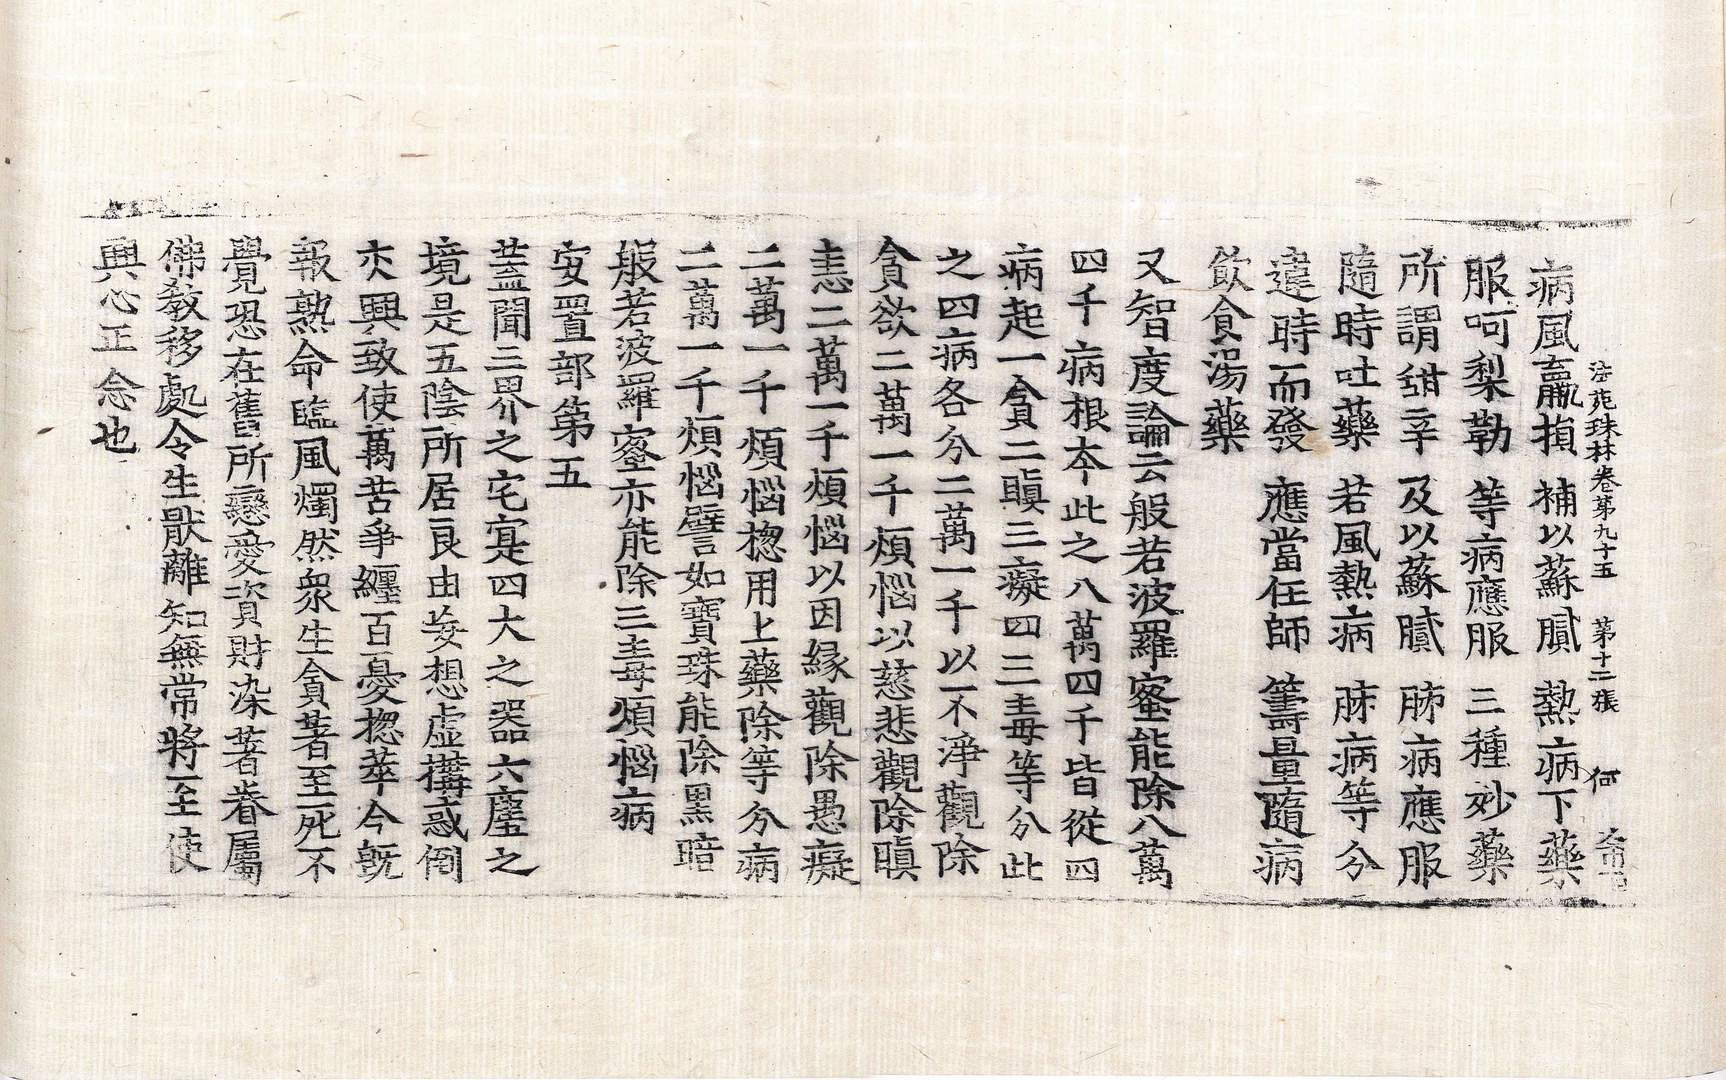 法苑珠林卷第九十五 第十二張 何
病風羸損 補以蘇膩 熱病下藥
服呵梨勒 等病應服 三種妙藥
所謂甜辛 及以蘇膩 肺病應服
隨時吐藥 若風熱病 肺病等分
違時而發 應當任師 籌量隨病
飲食湯藥
又智度論云般若波羅蜜能除八萬
四千病根本此之八萬四千皆從四
病起一貪二瞋三癡四三毒等分此
之四病各分二萬一千以不淨觀除
貪欲二萬一千煩惱以慈悲觀除瞋
恚二萬一千煩惱以因緣觀除愚癡
二萬一千煩惱揔用上藥除等分病
二萬一千煩惱譬如寶珠能除黑暗
般若波羅蜜亦能除三毒煩惱病
安置部第五
蓋聞三界之宅寔四大之器六塵之
境是五陰所居良由妄想虛搆惑倒
交興致使萬苦爭纏百憂揔萃今旣
報熟命臨風燭然衆生貪著至死不
覺恐在舊所戀愛資財染著眷屬
佛敎移處令生猒離知無常將至使
興心正念也